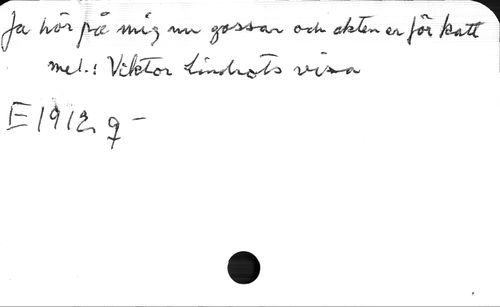 Ja hör på mig nu gossar och akten er för katt
mel.: Viktor Lindrots visa
E 1912 q -